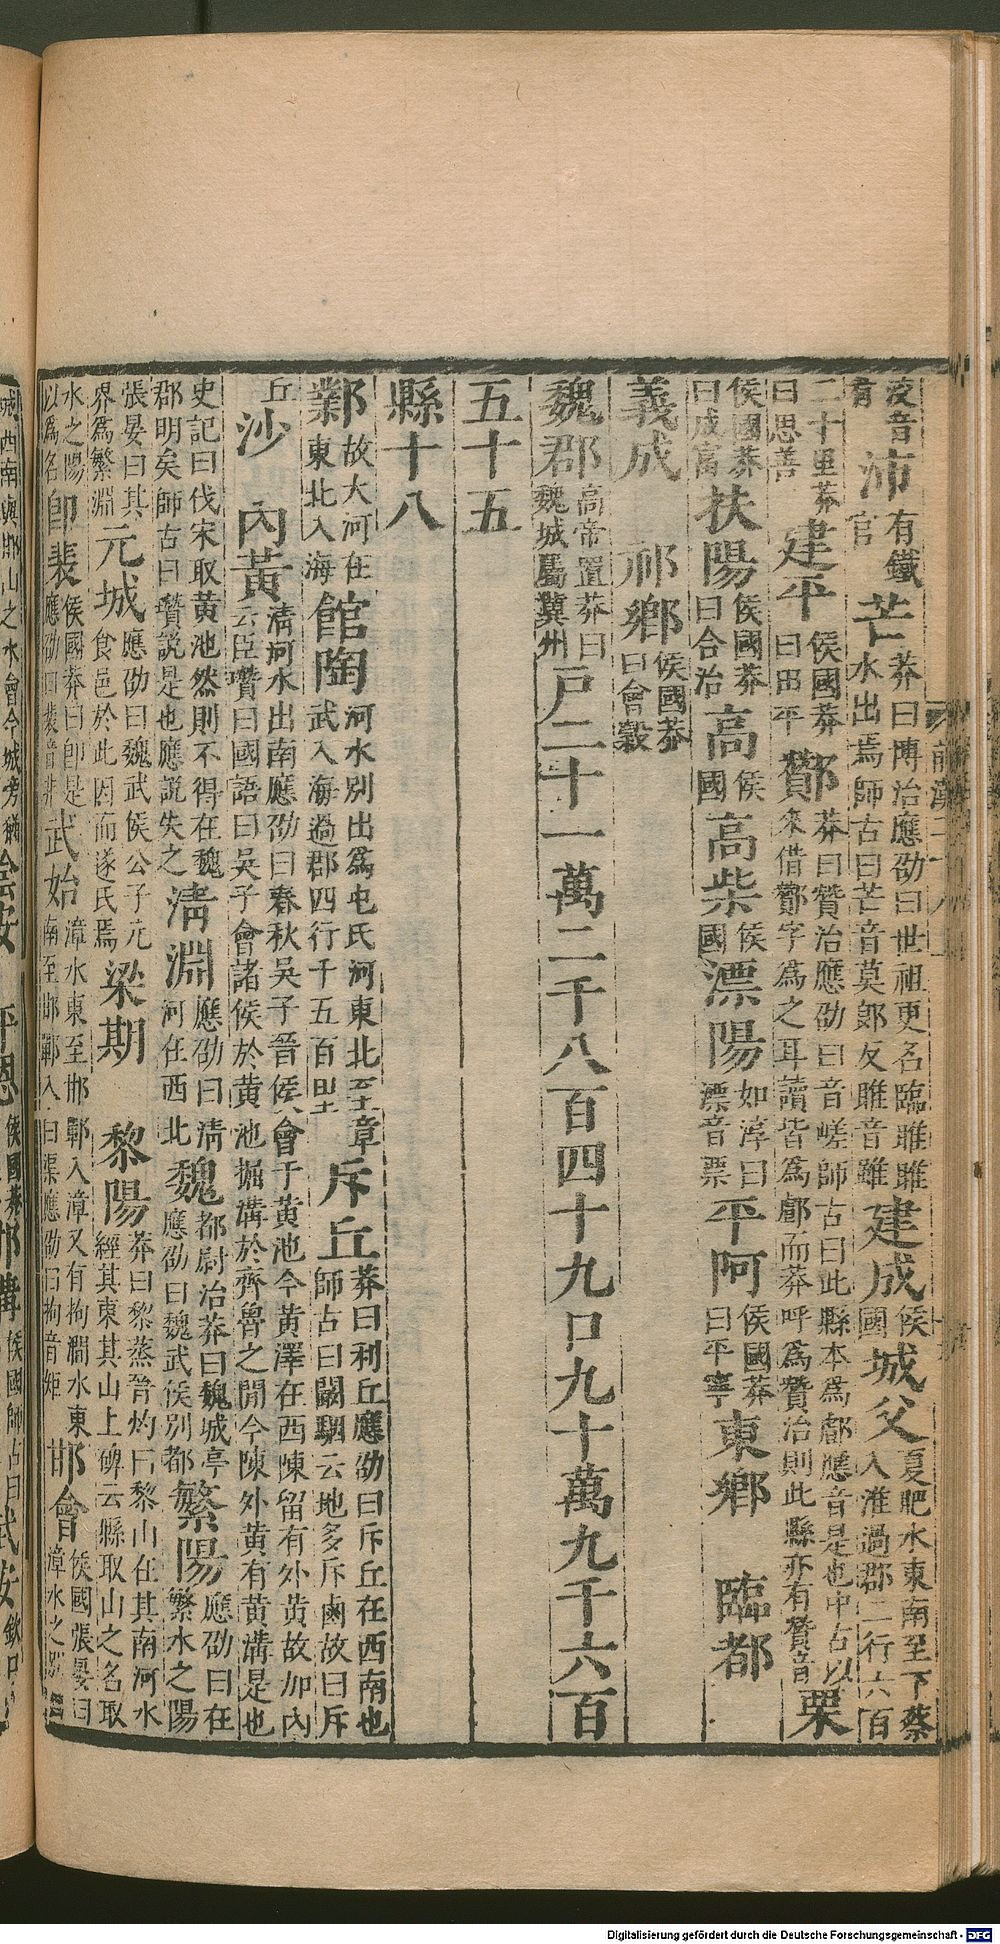 汳音有沛有鐵官芒莽曰博治應劭曰世祖更名臨睢睢水出焉師古曰芒音莫郎反睢音雖建成侯國城父夏肥水東南至下蔡入淮過郡二行六百
二十里莽曰思善建平侯國莽曰田平酇莽曰贊治應劭曰音嵯師古曰此縣本爲𨞐應音是也中古以來借酇字爲之耳讀皆爲𨞐而莽呼爲贊治則此縣亦有贊音栗
侯國莽曰成富扶陽侯國莽曰合治高侯國高柴侯國漂陽如淳曰漂音票平阿侯國莽曰平寧東鄉臨都
義成祁鄉侯國莽曰會穀
魏郡高帝置莽曰魏城屬冀州戸二十一萬二千八百四十九口九十萬九千六百
五十五
縣十八
鄴故大河在東北入海館陶河水別出爲屯氏河東北至章武入海過郡四行千五百里斥丘莽曰利丘應劭曰斥丘在西南也師古曰闞駰云地多斥鹵故曰斥
丘沙內黃淸河水出南應劭曰春秋吳子晉侯會于黃池今黃澤在西陳留有外黃故加內云臣瓚曰國語曰吳子會諸侯於黃池掘溝於齊魯之閒今陳外黃有黃溝是也
史記曰伐宋取黃池然則不得在魏郡明矣師古曰瓚說是也應說失之淸淵應劭曰淸河在西北魏都尉治莽曰魏城亭應劭曰魏武侯別都繁陽應劭曰在繁水之陽
張晏曰其界爲繁淵元城應劭曰魏武侯公子元食邑於此因而遂氏焉梁期黎陽莽曰黎蒸晉灼曰黎山在其南河水經其東其山上碑云縣取山之名取
水之陽以爲名卽裴侯國莽曰卽是應劭曰裴音非武始漳水東至邯鄲入漳又有拘澗水東南至邯鄲入白渠應劭曰拘音矩邯會侯國張晏曰漳水之別
城西南與邯山之水會今城旁猶
前漢二十八
Digitalisierung gefördert durch die Deutsche Forschungsgemeinschaft - DFG